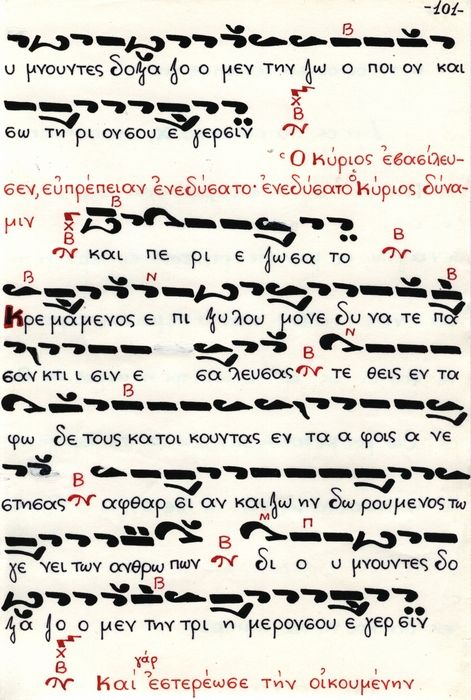 -101-
Β
υ μνουντες δοξα ζο ο μεν την ζω ο ποι ον και
σω τη ρι ον σου ε γερσιν
Χ
Β
Ὁ Κύριος ἐβασίλευ-
σεν, εὐπρέπειαν ἐνεδύσατο· ἐνεδύσατο Κύριος δύνα-
μιν Χ Β Β και πε ρι ε ζωσα το Β
Β Ν Β
Κρεμαμενος ε πι ξυλου μονε δυ να τε πα
σαν κτι σιν ε σα λευσας Β τε θεις εν τα
Ν
Β
φω δε τους κα τοι κουντας εν τα α φοις α νε
στησας Β αφθαρ σι αν και ζω ην δω ρου μενος τω
Μ Π
γε νει των ανθρω πων Β δι ο υ μνουντες δο
Β
ξα ζο ο μεν την τρι η μερον σου ε γερσιν
Χ
Β
Καὶ γάρ ἐστερέωσε τήν οἰκουμένην